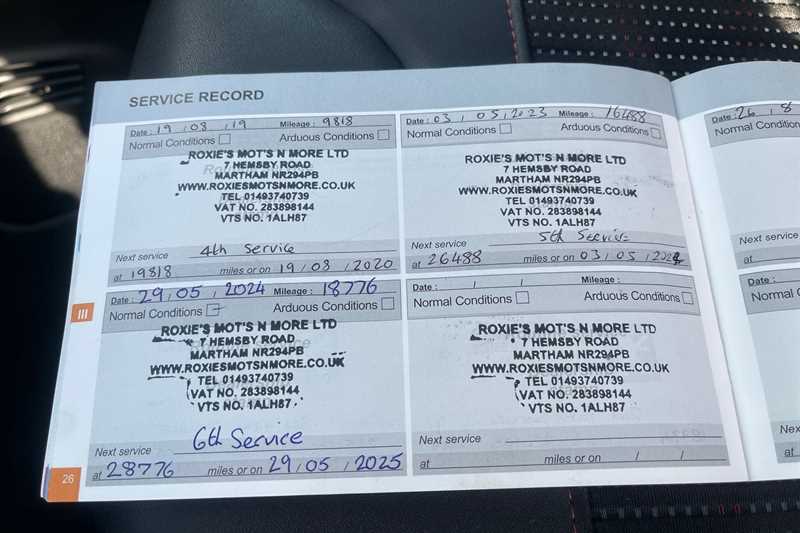 SERVICE RECORD
Date : 19 / 08 / 19 Mileage : 9818
Normal Conditions Arduous Conditions
ROXIE'S MOT'S N MORE LTD
7 HEMSBY ROAD
MARTHAM NR294PB
WWW.ROXIESMOTSNMORE.CO.UK
TEL 01493740739
VAT NO. 283898144
VTS NO. 1ALH87
4th Service
Next service
at 19818 miles or on 19 / 08 / 2020
Date : 03 / 05 / 2023 Mileage : 16488
Normal Conditions Arduous Conditions
ROXIE'S MOT'S N MORE LTD
7 HEMSBY ROAD
MARTHAM NR294PB
WWW.ROXIESMOTSNMORE.CO.UK
TEL 01493740739
VAT NO. 283898144
VTS NO. 1ALH87
5th Service
Next service
at 26488 miles or on 03 / 05 / 2024
Date : 29 / 05 / 2024 Mileage : 18776
Normal Conditions Arduous Conditions
ROXIE'S MOT'S N MORE LTD
7 HEMSBY ROAD
MARTHAM NR294PB
WWW.ROXIESMOTSNMORE.CO.UK
TEL 01493740739
VAT NO. 283898144
VTS NO. 1ALH87
6th Service
Next service
at 28776 miles or on 29 / 05 / 2025
Date : / / Mileage :
Normal Conditions Arduous Conditions
ROXIE'S MOT'S N MORE LTD
7 HEMSBY ROAD
MARTHAM NR294PB
WWW.ROXIESMOTSNMORE.CO.UK
TEL 01493740739
VAT NO. 283898144
VTS NO. 1ALH87
Next service
at miles or on / /
III
26
Date : 26 / 8
Normal Condition
Next service
at
Date :
Normal
Next service
at